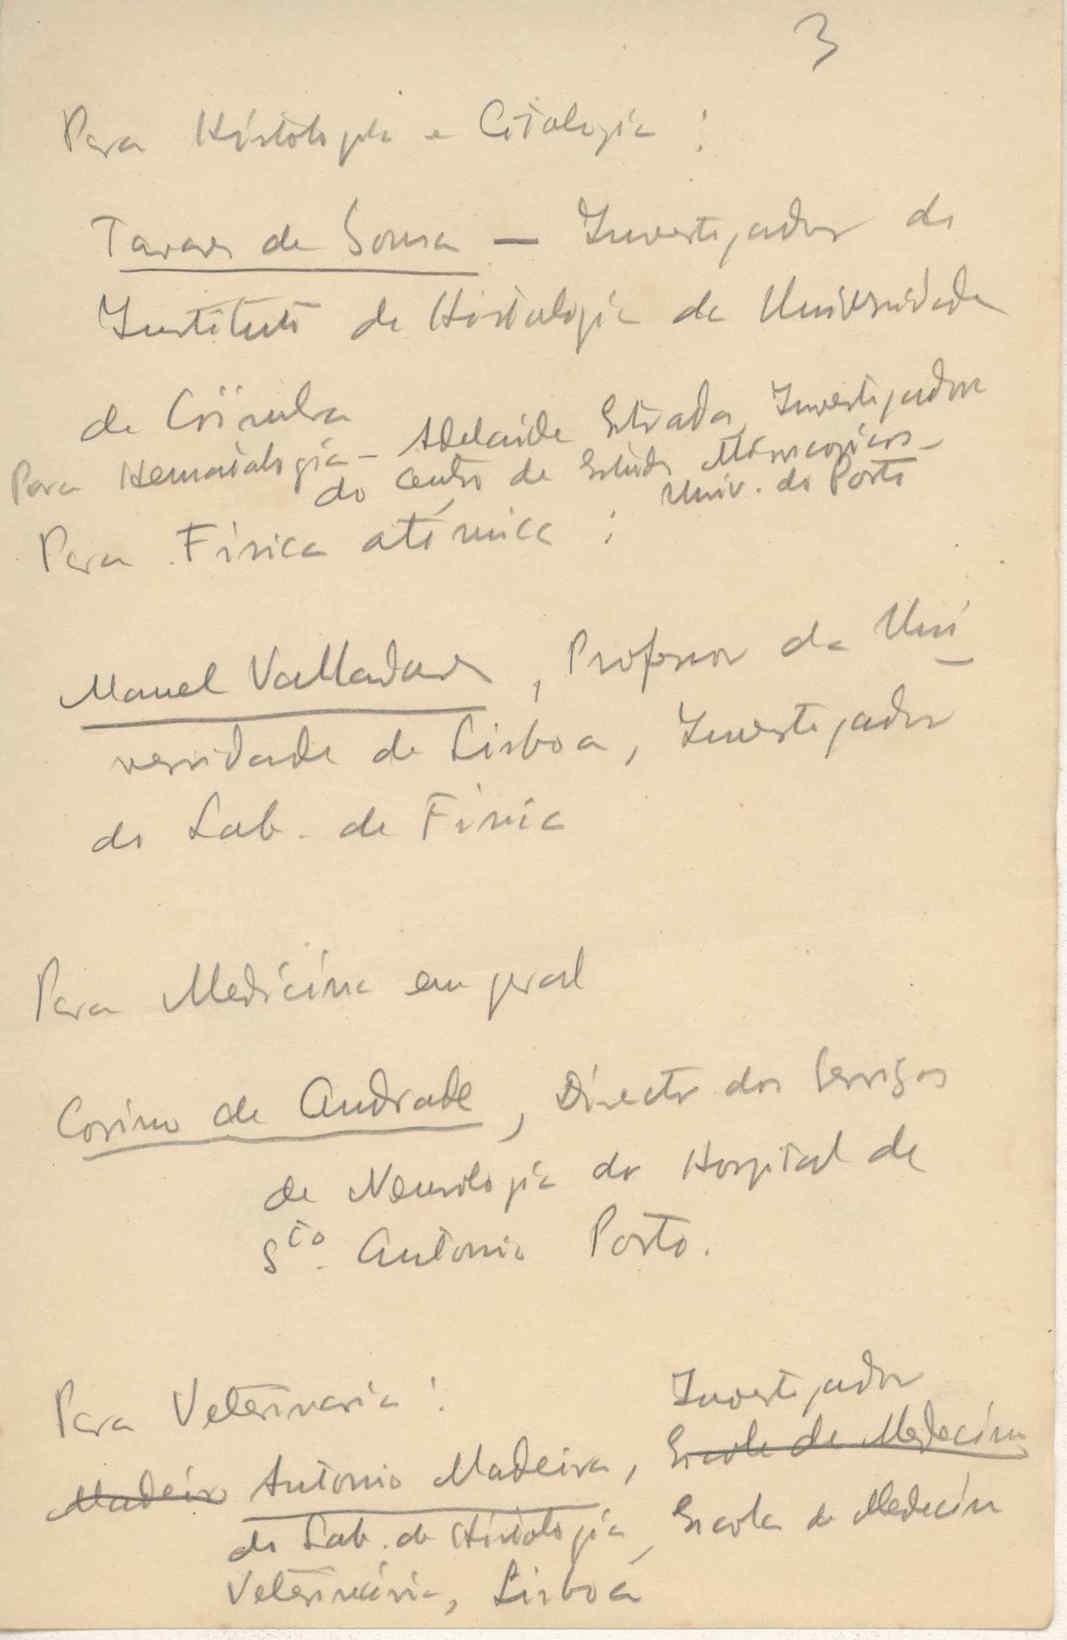 3
Para Histologia e Citologia :
Tavares de Sousa — Investigador do
Instituto de Histologia da Universidade
de Coimbra
Para Hematologia - Adelaide Estrada, Investigador
do Centro de Estudos Microscopicos -
Univ. do Porto
Para Fisica atómica :
Manuel Valladares, Professor da Uni
versidade de Lisboa, Investigador
do Lab. de Fisica
Para Medicina em geral
Corino de Andrade, Director dos Serviços
de Neurologia do Hospital de
Sto. Antonio Porto.
Para Veterinaria :
Investigador
Madeir Antonio Madeira, Escola de Medecina
do Lab. de Histologia, Escola de Medecin
Veterinária, Lisboa